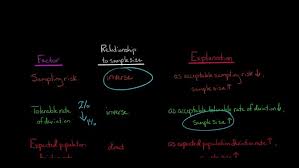 Factor
Relationship
to sample size
Explanation
Sampling risk
inverse
as acceptable sampling risk ↓,
sample size ↑
Tolerable rate
of deviation
2%
↓ 1%
inverse
as acceptable tolerable rate of deviation ↓,
sample size ↑
Expected population
direct
as expected population deviation rate ↑,